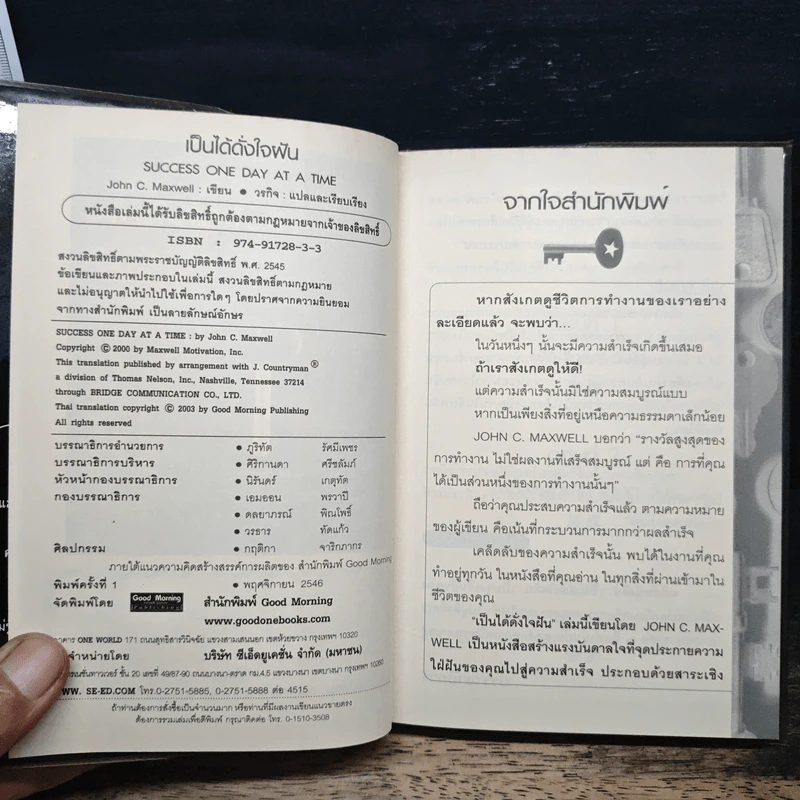 เป็นได้ดั่งใจฝัน
SUCCESS ONE DAY AT A TIME
John C. Maxwell : เขียน ● วรกิจ : แปลและเรียบเรียง
หนังสือเล่มนี้ได้รับลิขสิทธิ์ถูกต้องตามกฎหมายจากเจ้าของลิขสิทธิ์
ISBN : 974-91728-3-3
สงวนลิขสิทธิ์ตามพระราชบัญญัติลิขสิทธิ์ พ.ศ. 2545
ข้อเขียนและภาพประกอบในเล่มนี้ สงวนลิขสิทธิ์ตามกฎหมาย
และไม่อนุญาตให้นำไปใช้เพื่อการใดๆ โดยปราศจากความยินยอม
จากทางสำนักพิมพ์ เป็นลายลักษณ์อักษร
SUCCESS ONE DAY AT A TIME : by John C. Maxwell
Copyright © 2000 by Maxwell Motivation, Inc.
This translation published by arrangement with J. Countryman®
a division of Thomas Nelson, Inc., Nashville, Tennessee 37214
through BRIDGE COMMUNICATION CO., LTD.
Thai translation copyright © 2003 by Good Morning Publishing
All rights reserved
บรรณาธิการอำนวยการ ● ภูริทัต รัศมีเพชร
บรรณาธิการบริหาร ● ศิริกานดา ศรีชลัมภ์
หัวหน้ากองบรรณาธิการ ● นิรันดร์ เกตุทัต
กองบรรณาธิการ ● เอมออน พรวาปี
● ดลยาภรณ์ พิณโพธิ์
● วรธาร ทัดแก้ว
ศิลปกรรม ● กฤติกา จาริกภากร
ภายใต้แนวความคิดสร้างสรรค์การผลิตของ สำนักพิมพ์ Good Morning
พิมพ์ครั้งที่ 1 ● พฤศจิกายน 2546
จัดพิมพ์โดย Good Morning Publishing สำนักพิมพ์ Good Morning
www.goodonebooks.com
อาคาร ONE WORLD 171 ถนนสุทธิสารวินิจฉัย แขวงสามเสนนอก เขตห้วยขวาง กรุงเทพฯ 10320
จำหน่ายโดย บริษัท ซีเอ็ดยูเคชั่น จำกัด (มหาชน)
ชั้น 20 เลขที่ 49/87-90 ถนนบางนา-ตราด กม.4.5 แขวงบางนา เขตบางนา กรุงเทพฯ 10260
WWW. SE-ED.COM โทร.0-2751-5885, 0-2751-5888 ต่อ 4515
ถ้าท่านต้องการสั่งซื้อเป็นจำนวนมาก หรือท่านที่มีผลงานเขียนแนวขายตรง
ต้องการรวมเล่มเพื่อตีพิมพ์ กรุณาติดต่อ โทร. 0-1510-3508
จากใจสำนักพิมพ์
หากสังเกตดูชีวิตการทำงานของเราอย่าง
ละเอียดแล้ว จะพบว่า...
ในวันหนึ่งๆ นั้นจะมีความสำเร็จเกิดขึ้นเสมอ
ถ้าเราสังเกตดูให้ดี!
แต่ความสำเร็จนั้นมิใช่ความสมบูรณ์แบบ
หากเป็นเพียงสิ่งที่อยู่เหนือความธรรมดาเล็กน้อย
JOHN C. MAXWELL บอกว่า "รางวัลสูงสุดของ
การทำงาน ไม่ใช่ผลงานที่เสร็จสมบูรณ์ แต่ คือ การที่คุณ
ได้เป็นส่วนหนึ่งของการทำงานนั้นๆ"
ถือว่าคุณประสบความสำเร็จแล้ว ตามความหมาย
ของผู้เขียน คือเน้นที่กระบวนการมากกว่าผลสำเร็จ
เคล็ดลับของความสำเร็จนั้น พบได้ในงานที่คุณ
ทำอยู่ทุกวัน ในหนังสือที่คุณอ่าน ในทุกสิ่งที่ผ่านเข้ามาใน
ชีวิตของคุณ
"เป็นได้ดั่งใจฝัน" เล่มนี้เขียนโดย JOHN C. MAX-
WELL เป็นหนังสือสร้างแรงบันดาลใจที่จุดประกายความ
ใฝ่ฝันของคุณไปสู่ความสำเร็จ ประกอบด้วยสาระเชิง